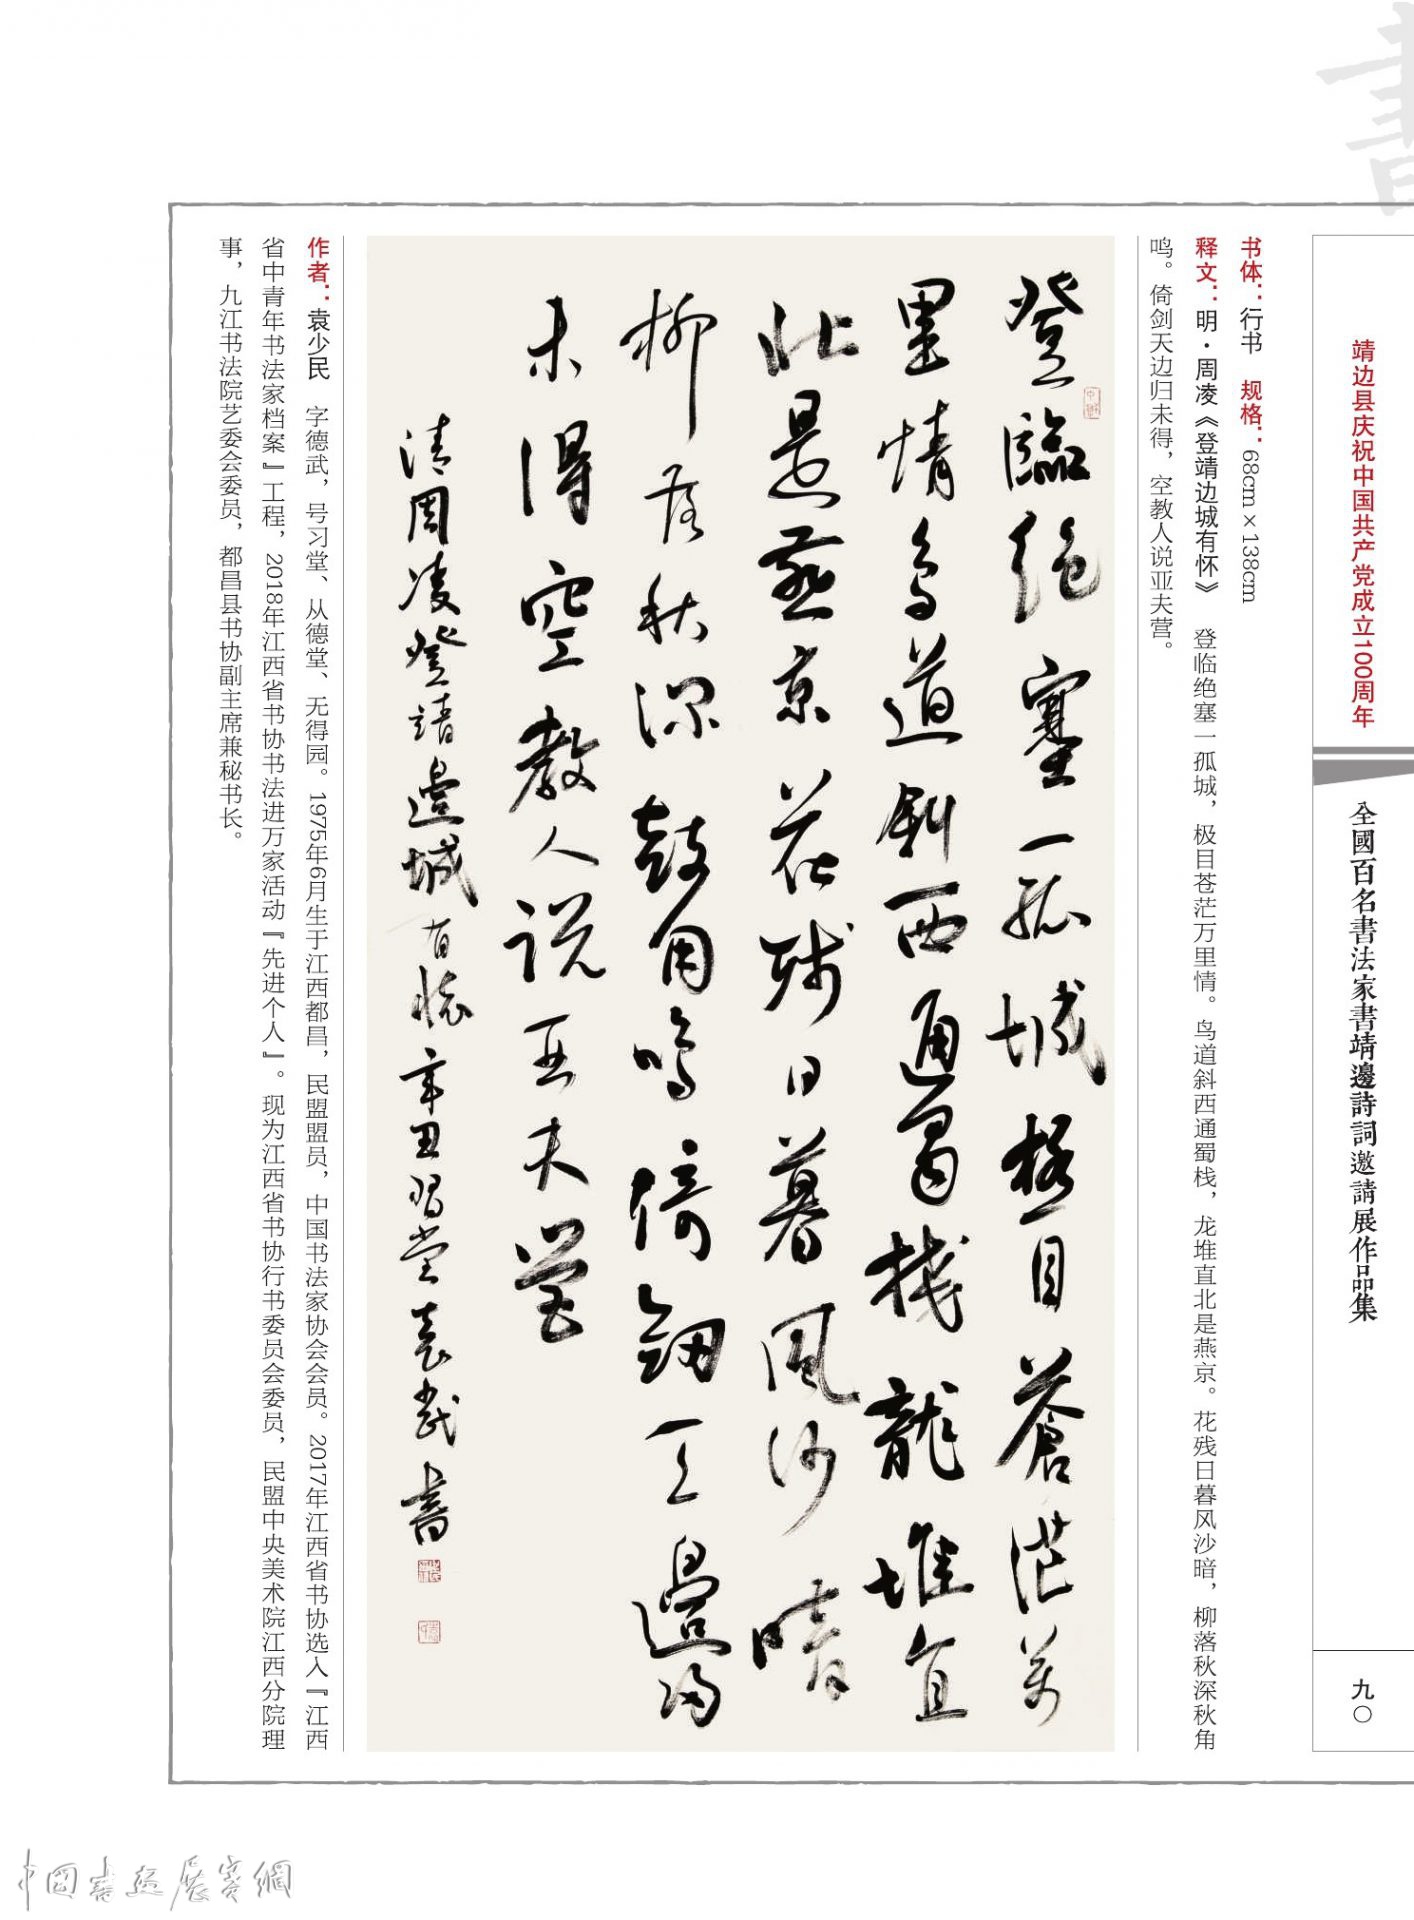 靖边县庆祝中国共产党成立100周年
全國百名書法家書靖邊詩詞邀請展作品集
九〇
书体：行书　规格：68cm×138cm
释文：明·周凌《登靖边城有怀》　登临绝塞一孤城，极目苍茫万里情。鸟道斜西通蜀栈，龙堆直北是燕京。花残日暮风沙暗，柳落秋深秋角
鸣。倚剑天边归未得，空教人说亚夫营。
登臨絕塞一孤城極目蒼茫萬
里情鳥道斜西通蜀棧龍堆直
北是燕京花殘日暮風沙暗
柳落秋深鼓角鳴倚劍天邊歸
未得空教人說亞夫營
清周凌登靖邊城有懷辛丑習堂袁武書
作者：袁少民　字德武，号习堂、从德堂、无得园。1975年6月生于江西都昌，民盟盟员，中国书法家协会会员。2017年江西省书协选入『江西
省中青年书法家档案』工程，2018年江西省书协书法进万家活动『先进个人』。现为江西省书协行书委员会委员，民盟中央美术院江西分院理
事，九江书法院艺委会委员，都昌县书协副主席兼秘书长。
書
中國書畫展賽網